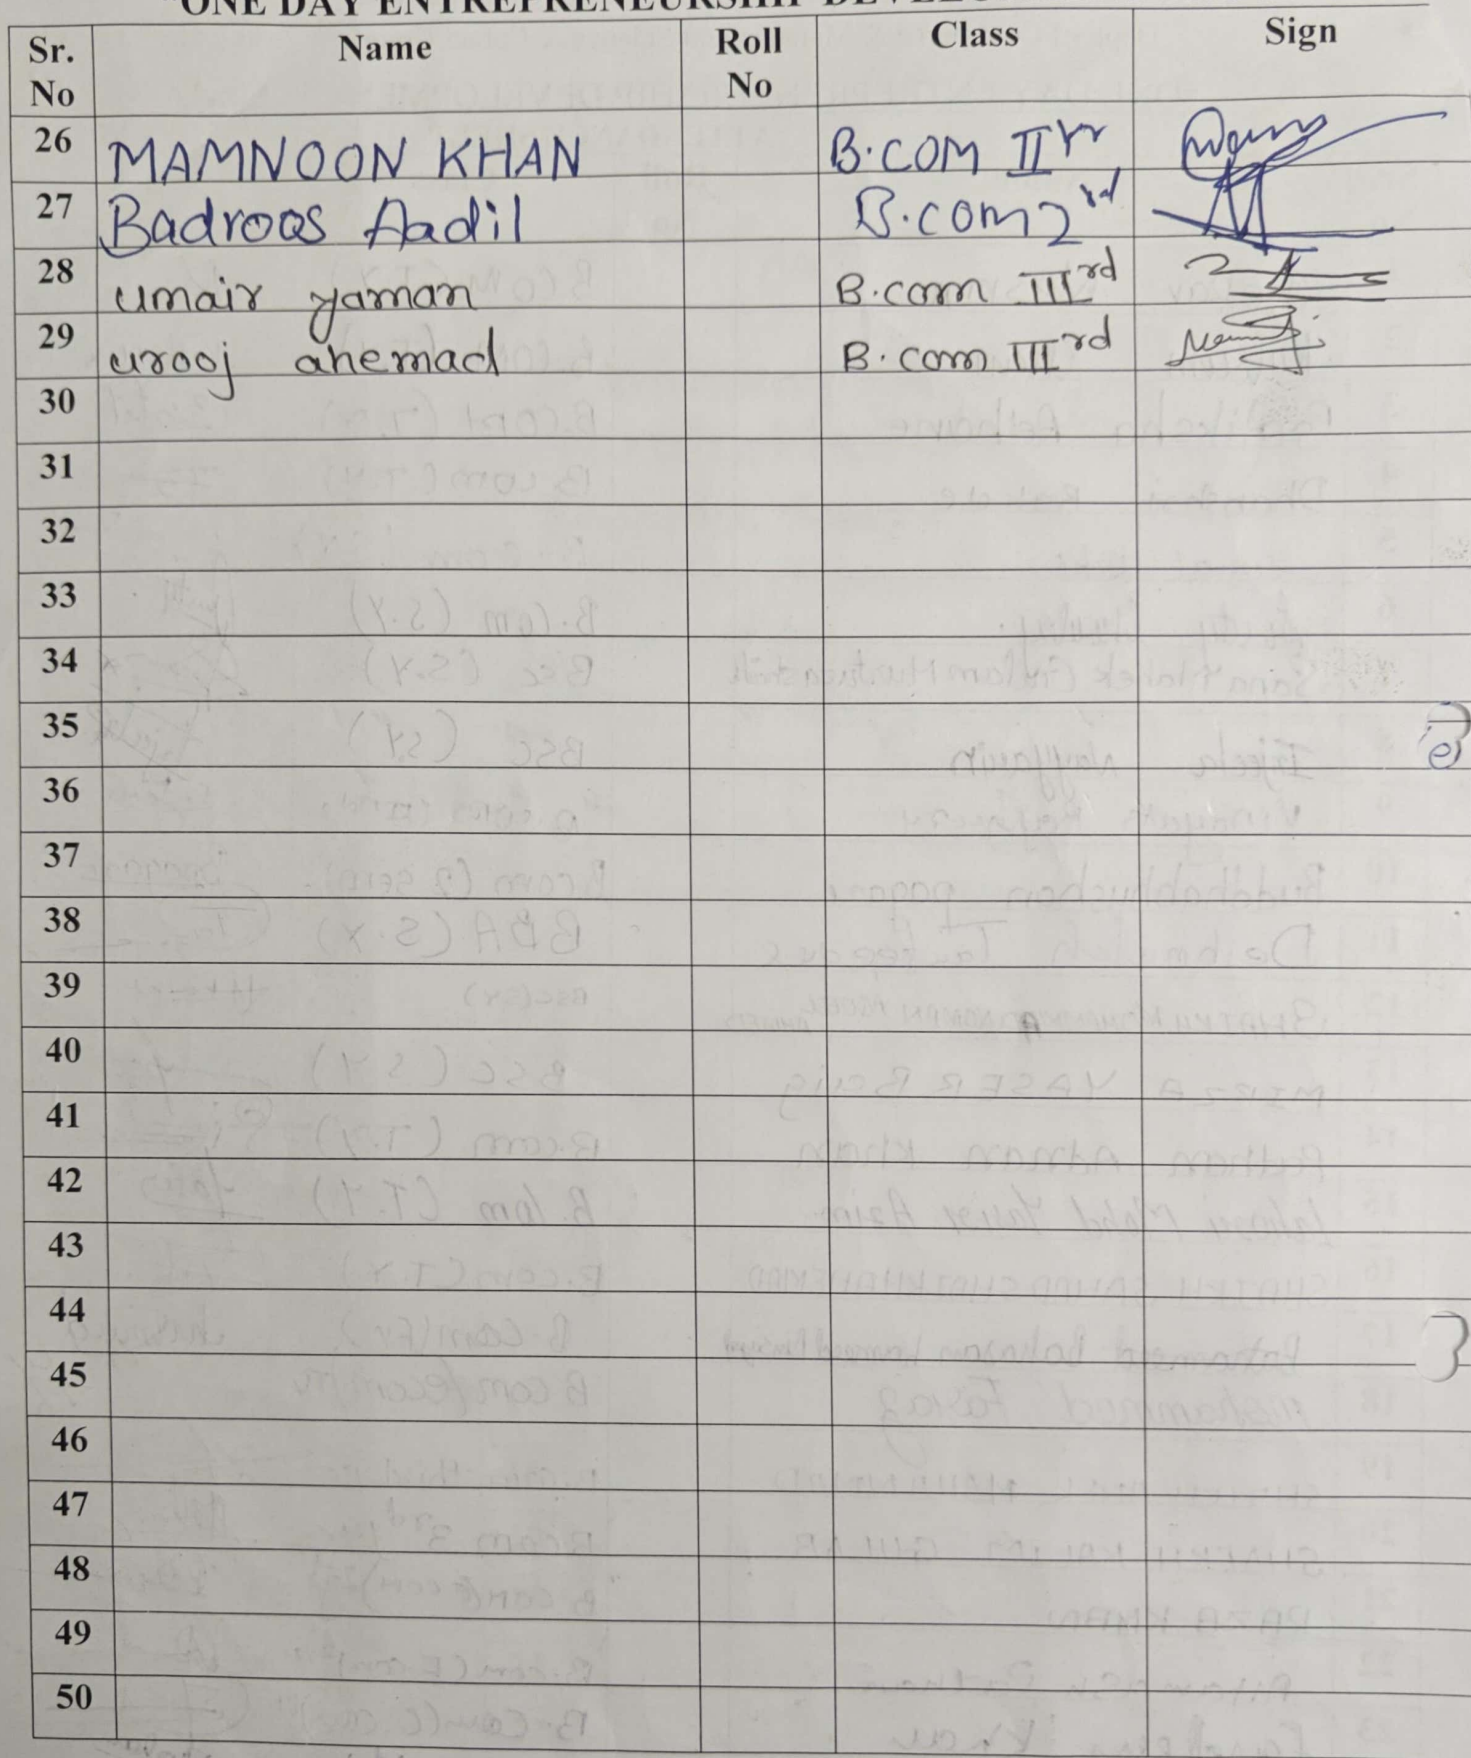 "ONE DAY ENTREPRENEURSHIP
Sr. No Name Roll No Class Sign
26 MAMNOON KHAN B.COM II yr
27 Badroos Aadil B.com 2nd
28 umair yaman B.com IIIrd
29 urooj ahemad B.com IIIrd
30
31
32
33
34
35
36
37
38
39
40
41
42
43
44
45
46
47
48
49
50